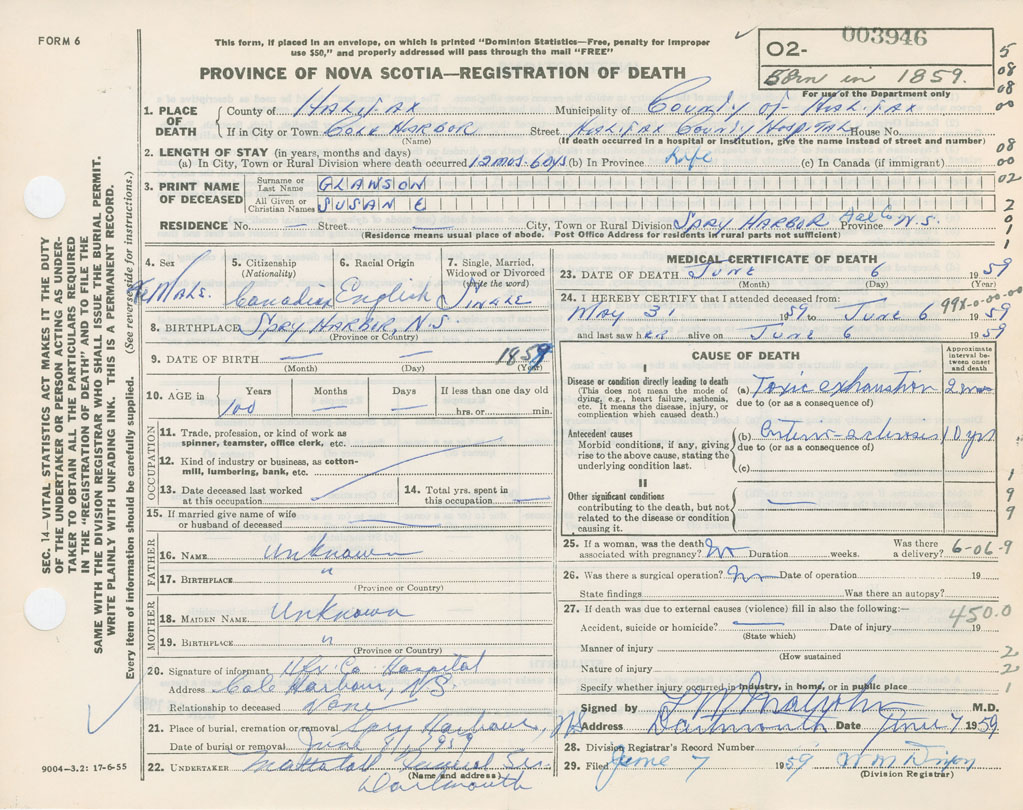 FORM 6
This form, if placed in an envelope, on which is printed "Dominion Statistics—Free, penalty for improper
use $50," and properly addressed will pass through the mail "FREE"
PROVINCE OF NOVA SCOTIA—REGISTRATION OF DEATH
003946
O2-
Born in 1859.
For use of the Department only
5
08
08
00
08
00
02
2
0
1
1
1. PLACE OF DEATH
County of HALIFAX Municipality of COUNTY OF HALIFAX
If in City or Town COLE HARBOR Street HALIFAX COUNTY HOSPITAL House No.
(Name) (If death occurred in a hospital or institution, give the name instead of street and number)
2. LENGTH OF STAY (in years, months and days)
(a) In City, Town or Rural Division where death occurred 12 mos-6 dys (b) In Province Life (c) In Canada (if immigrant)
3. PRINT NAME OF DECEASED
Surname or Last Name GLAWSON
All Given or Christian Names SUSAN E
RESIDENCE No. — Street — City, Town or Rural Division SPRY HARBOR Hal Co Province N.S.
(Residence means usual place of abode. Post Office Address for residents in rural parts not sufficient)
4. Sex FeMALE.
5. Citizenship (Nationality) Canadian
6. Racial Origin English
7. Single, Married, Widowed or Divorced (write the word) SINGLE
8. BIRTHPLACE SPRY HARBOR, N.S.
(Province or Country)
9. DATE OF BIRTH — — 1859
(Month) (Day) (Year)
10. AGE in Years Months Days If less than one day old
100 — — hrs. or min.
OCCUPATION
11. Trade, profession, or kind of work as
spinner, teamster, office clerk, etc.
12. Kind of industry or business, as cotton-
mill, lumbering, bank, etc.
13. Date deceased last worked
at this occupation
14. Total yrs. spent in
this occupation —
15. If married give name of wife
or husband of deceased —
FATHER
16. NAME Unknown
17. BIRTHPLACE "
(Province or Country)
MOTHER
18. MAIDEN NAME Unknown
19. BIRTHPLACE "
(Province or Country)
20. Signature of informant Hfx. Co. Hospital
Address Cole Harbour, N.S.
Relationship to deceased None
21. Place of burial, cremation or removal Spry Harbour, N.S.
Date of burial or removal June 9/1959
22. UNDERTAKER Mattatall Funeral Ser.
(Name and address)
Dartmouth
MEDICAL CERTIFICATE OF DEATH
23. DATE OF DEATH JUNE 6 1959
(Month) (Day) (Year)
24. I HEREBY CERTIFY that I attended deceased from: 99X-0-00-00
MAY 31 1959 to JUNE 6 1959
and last saw hER alive on JUNE 6 1959
CAUSE OF DEATH
Approximate interval between onset and death
I
Disease or condition directly leading to death
(This does not mean the mode of
dying, e.g., heart failure, asthenia,
etc. It means the disease, injury, or
complication which caused death.)
(a) Toxic exhaustion 2 mos
due to (or as a consequence of)
Antecedent causes
Morbid conditions, if any, giving
rise to the above cause, stating the
underlying condition last.
(b) Arterio-sclerosis 10 yrs
due to (or as a consequence of)
(c)
II
Other significant conditions
contributing to the death, but not
related to the disease or condition
causing it.
—
1
9
9
9
25. If a woman, was the death
associated with pregnancy? No Duration weeks. Was there
a delivery? 6-06-9
26. Was there a surgical operation? No Date of operation 19
State findings Was there an autopsy?
27. If death was due to external causes (violence) fill in also the following:—
450.0
Accident, suicide or homicide? — Date of injury 19
(State which)
Manner of injury
(How sustained
Nature of injury
Specify whether injury occurred in industry, in home, or in public place
2
2
1
Signed by M.D.
Address Dartmouth Date June 7 1959
28. Division Registrar's Record Number
29. Filed June 7 1959 W M Dixon
(Division Registrar)
SEC. 14—VITAL STATISTICS ACT MAKES IT THE DUTY
OF THE UNDERTAKER OR PERSON ACTING AS UNDER-
TAKER TO OBTAIN ALL THE PARTICULARS REQUIRED
IN THE "REGISTRATION OF DEATH" AND TO FILE THE
SAME WITH THE DIVISION REGISTRAR WHO SHALL ISSUE THE BURIAL PERMIT.
WRITE PLAINLY WITH UNFADING INK. THIS IS A PERMANENT RECORD.
Every item of information should be carefully supplied. (See reverse side for instructions.)
9004-3.2: 17-6-55